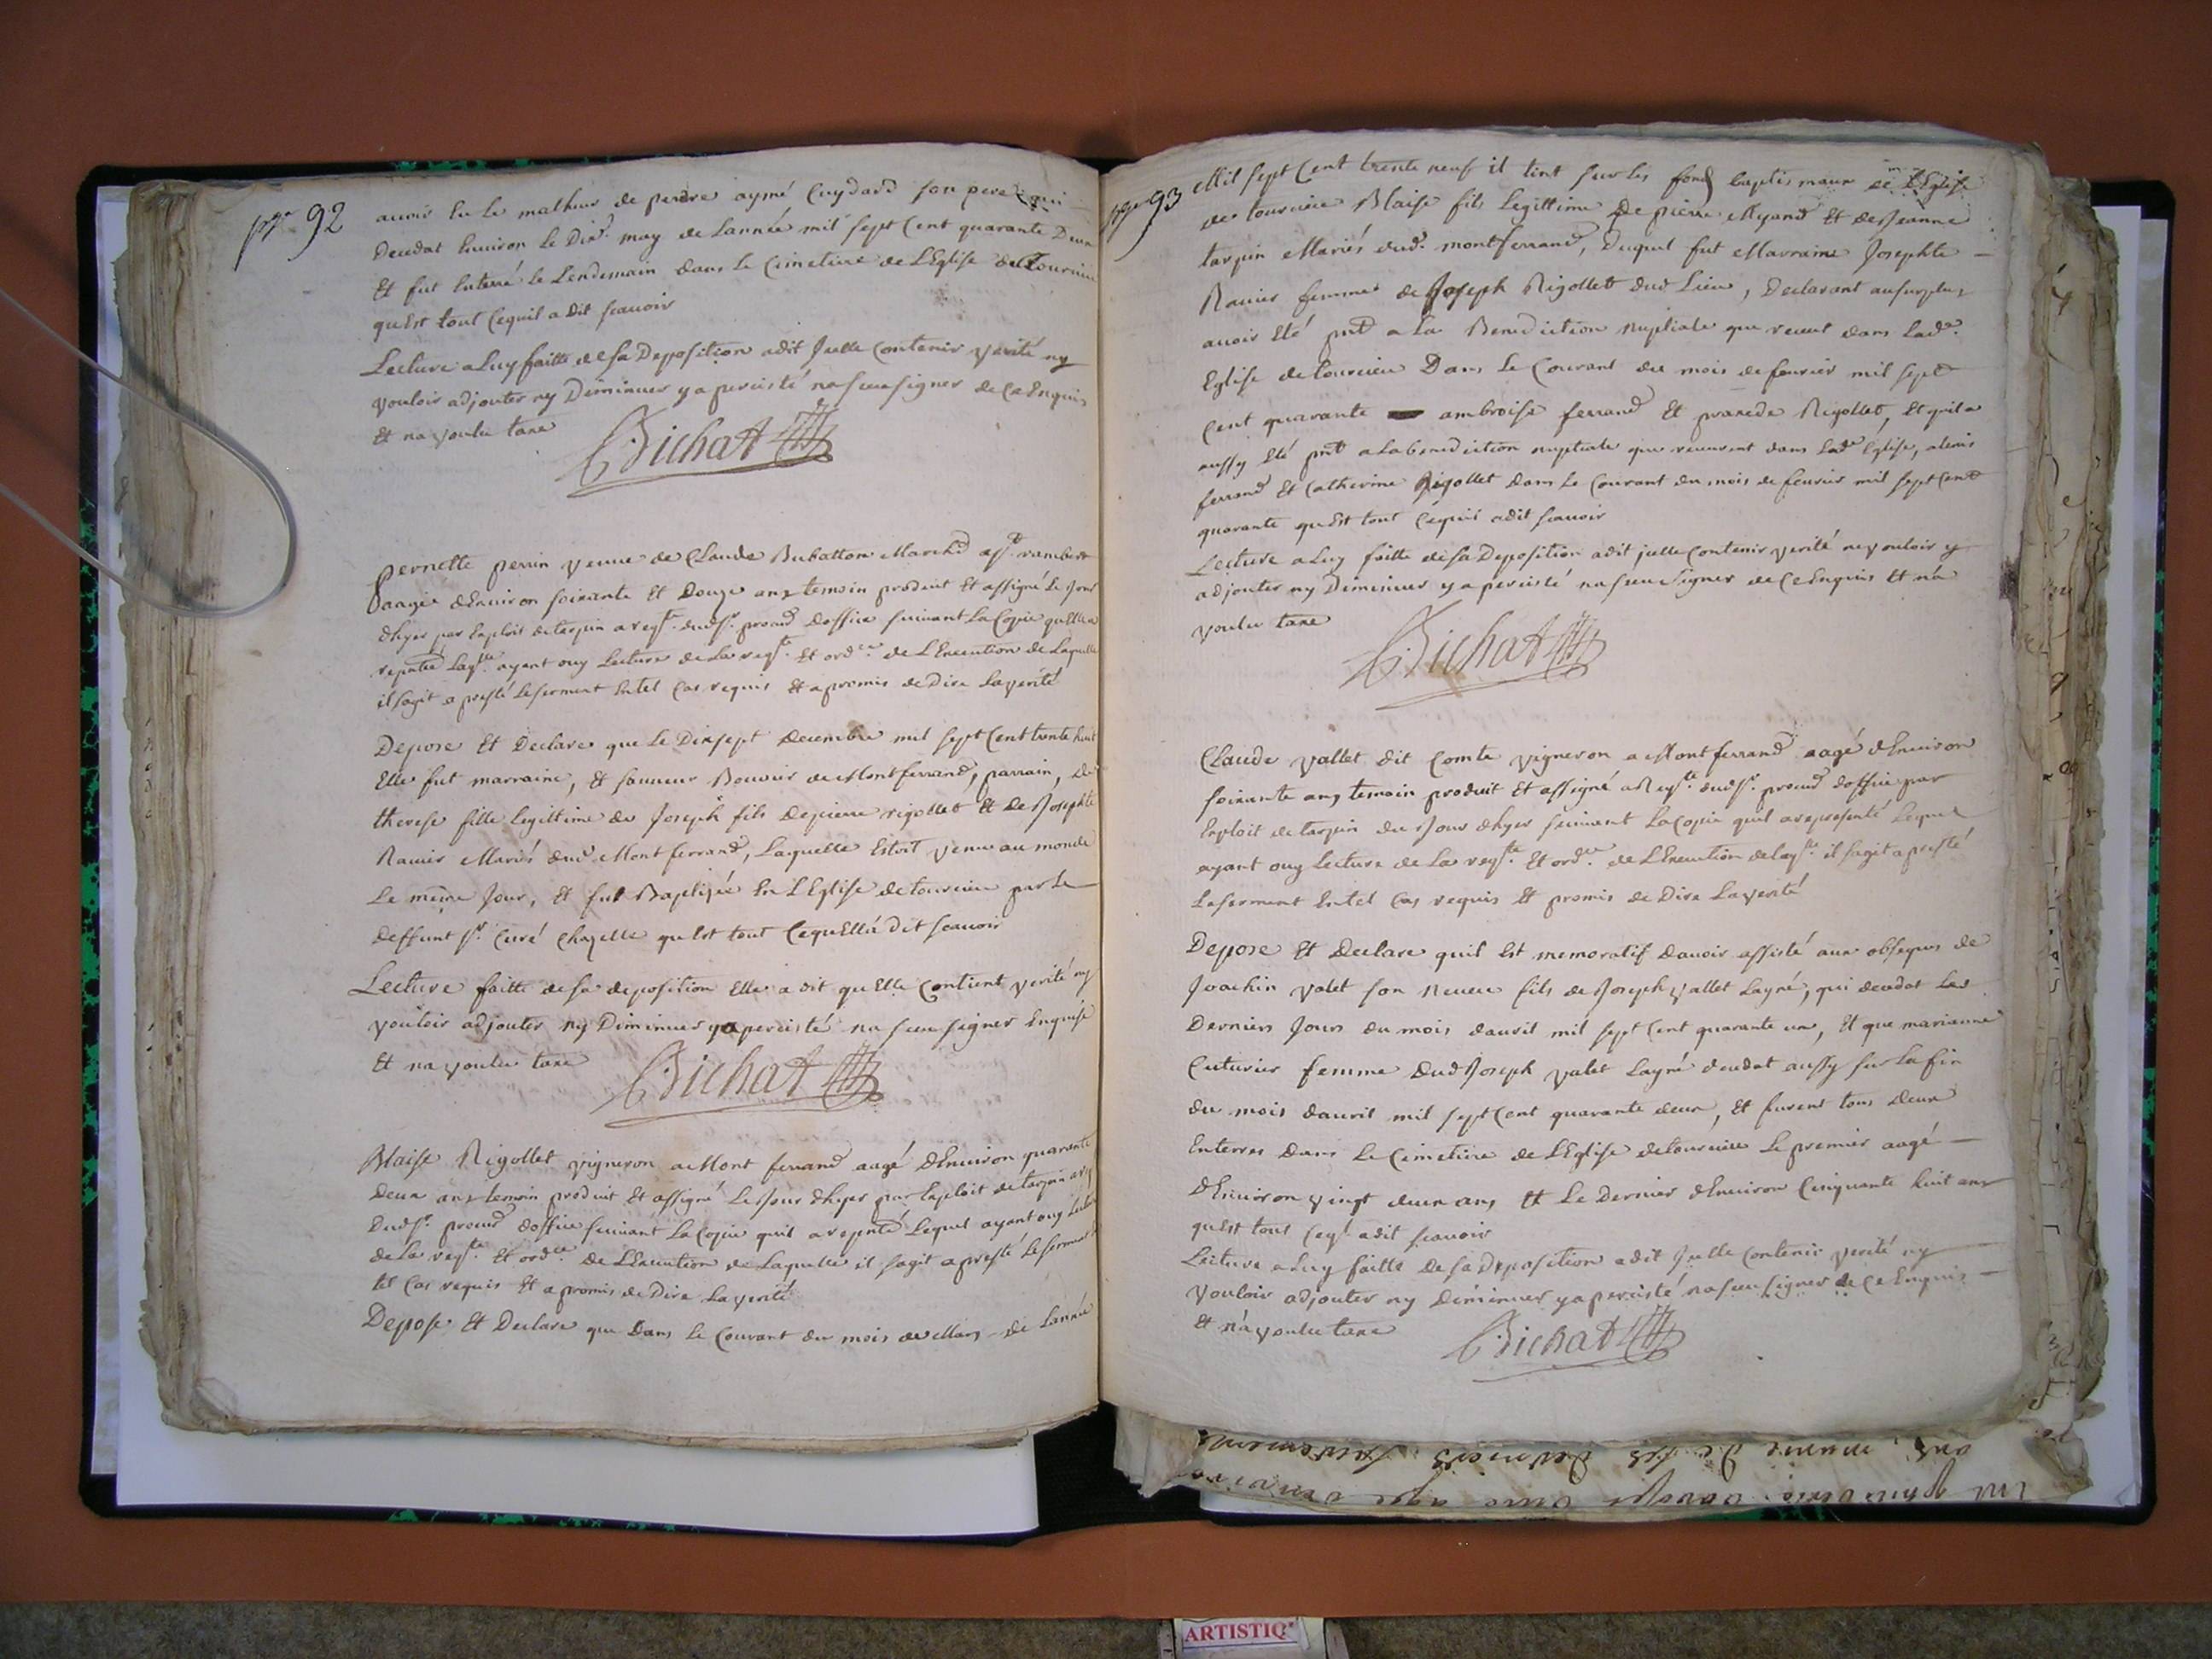 pge 92
avoir eu le malheur de perdre aymé Cuydard son pere qui
deceda Environ le Dixe. may de Lannée mil sept Cent quarante Deux
Et fut Enterré le Lendemain dans le Cimetiere de LEglise de Tourcieu
quEst tout Cequil a dit scavoir
Lecture a Luy faitte de sa Deposition a dit Jcelle Contenir verité ny
vouloir adjouter ny Diminuer y a percisté na sceu signer de Ce Enquis
Et na voulu taxe
Bichat
Pernette perrin veuve de Claude Buhatton Marchd a st. rambert
aagée dEnviron soixante Et Douze ans temoin produit Et assigné le Jour
dhyer par Exploit de tarpin a reqte. dud sr. procur doffice suivant La Copie quElle a
repntée Laqlle ayant ouy Lecture de La reqte. Et ordce. de LExecution de Laquelle
il sagit a presté le serment En tel Cas requis Et a promis de Dire La verité
Depose Et Declare que Le Dixsept Decembre mil sept Cent trente huit
Elle fut marraine, Et sauveur Bouvier de Montferrand, parrain, de
therese fille legittime de Joseph fils de pierre rigollet Et de Josephte
Ravier Mariés dud. Montferrand, Laquelle Estoit venue au monde
Le même Jour, Et fut Baptizée En LEglise de tourcieu par Le
deffunt sr. Curé Chazelle quEst tout CequElle a dit scavoir
Lecture faitte de sa deposition Elle a dit quElle Contient verité ny
vouloir adjouter ny Diminuer y a percisté na sceu signer Enquise
Et na voulu taxe
Bichat
Blaise Rigollet vigneron a Mont ferrand aagé dEnviron quarante
deux ans temoin produit Et assigné Le Jour dhyer par Exploit de tarpin a reqte
Dud sr. procur doffice suivant La Copie quil a repntée Lequel ayant ouy Lecture
de La reqte. Et ordce de LExecution de Laquelle il sagit a presté le serment
tel Cas requis Et a promis de Dire La verité
Depose Et Declare que Dans le Courant du mois de Mars de Lannée
pge 93
Mil sept Cent trente neuf il tint sur les fonds baptismaux de LEglise
de tourcieu Blaise fils Legittime De pierre Myand Et de Jeanne
tarpin Mariés dud. montferrand, duquel fut Marraine Josephte
Ravier femme de Joseph Rigollet dud Lieu, Declarant au surplus
avoir Eté pnt a La Benediction nuptiale que receut dans Lade.
Eglise de tourcieu Dans Le Courant du mois de fevrier mil sept
Cent quarante ambroise ferrand Et praxede Rigollet, Et quil a
aussy Eté pnt a La benediction nuptiale que receurent dans Lade Eglise, alexis
ferrand Et Catherine Rigollet dans Le Courant du mois de fevrier mil sept Cent
quarante quEst tout Cequil a dit scavoir
Lecture a Luy faitte de sa Deposition a dit jcelle Contenir verité ne vouloir y
adjouter ny Diminuer y a percisté na sceu signer de Ce Enquis Et na
voulu taxe
Bichat
Claude vallet dit Comte vigneron a Montferrand aagé dEnviron
soixante ans temoin produit Et assigné a Reqte. dud sr. procur doffice par
Exploit de tarpin du Jour dhyer suivant La Copie quil a representé Lequel
ayant ouy Lecture de La reqte. Et ordce. de LExecution de laqlle. il sagit a presté
Le serment En tel Cas requis Et promis de Dire La verité
Depose Et Declare quil Est memoratif davoir assisté aux obseques de
Joachin valet son neveu fils de Joseph vallet Layné, qui deceda Les
Derniers Jours du mois davril mil sept Cent quarante un, Et que marianne
Cuturier femme Dud Joseph valet Layné deceda aussy sur La fin
du mois davril mil sept Cent quarante deux, Et furent tous deux
Enterrés dans Le Cimetiere de LEglise de tourcieu Le premier aagé
dEnviron vingt deux ans Et Le Dernier dEnviron Cinquante huit ans
quEst tout Ceql a dit scavoir
Lecture a Luy faitte de sa Deposition a dit Jcelle Contenir verité ny
vouloir adjouter ny diminuer y a percisté na sceu signer de Ce Enquis
Et na voulu taxe
Bichat
ARTISTIQ